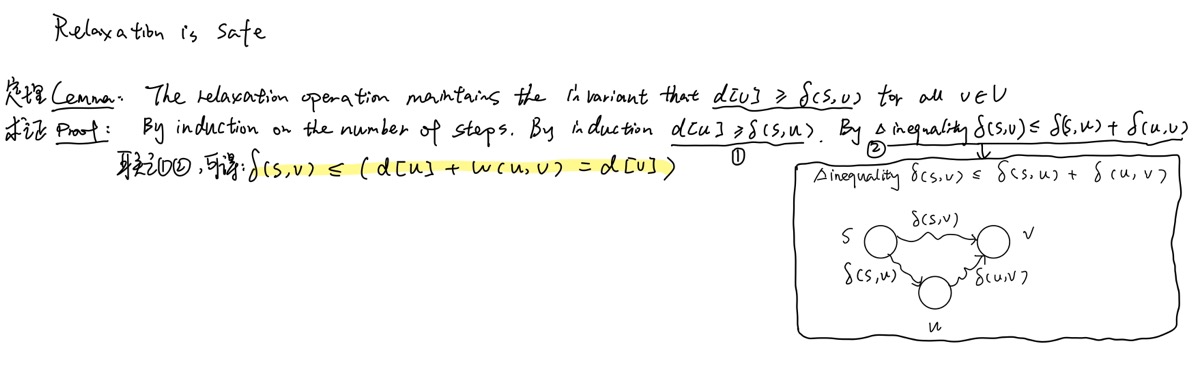 Relaxation is safe
定理 Lemma: The relaxation operation maintains the invariant that d[v] ≥ δ(s,v) for all v∈V
求证 Proof: By induction on the number of steps. By induction d[u] ≥ δ(s,u). By △ inequality δ(s,v) ≤ δ(s,u) + δ(u,v)
① ②
联立①②,可得: δ(s,v) ≤ (d[u] + w(u,v) = d[v])
△inequality δ(s,v) ≤ δ(s,u) + δ(u,v)
δ(s,v)
s v
δ(s,u) δ(u,v)
u